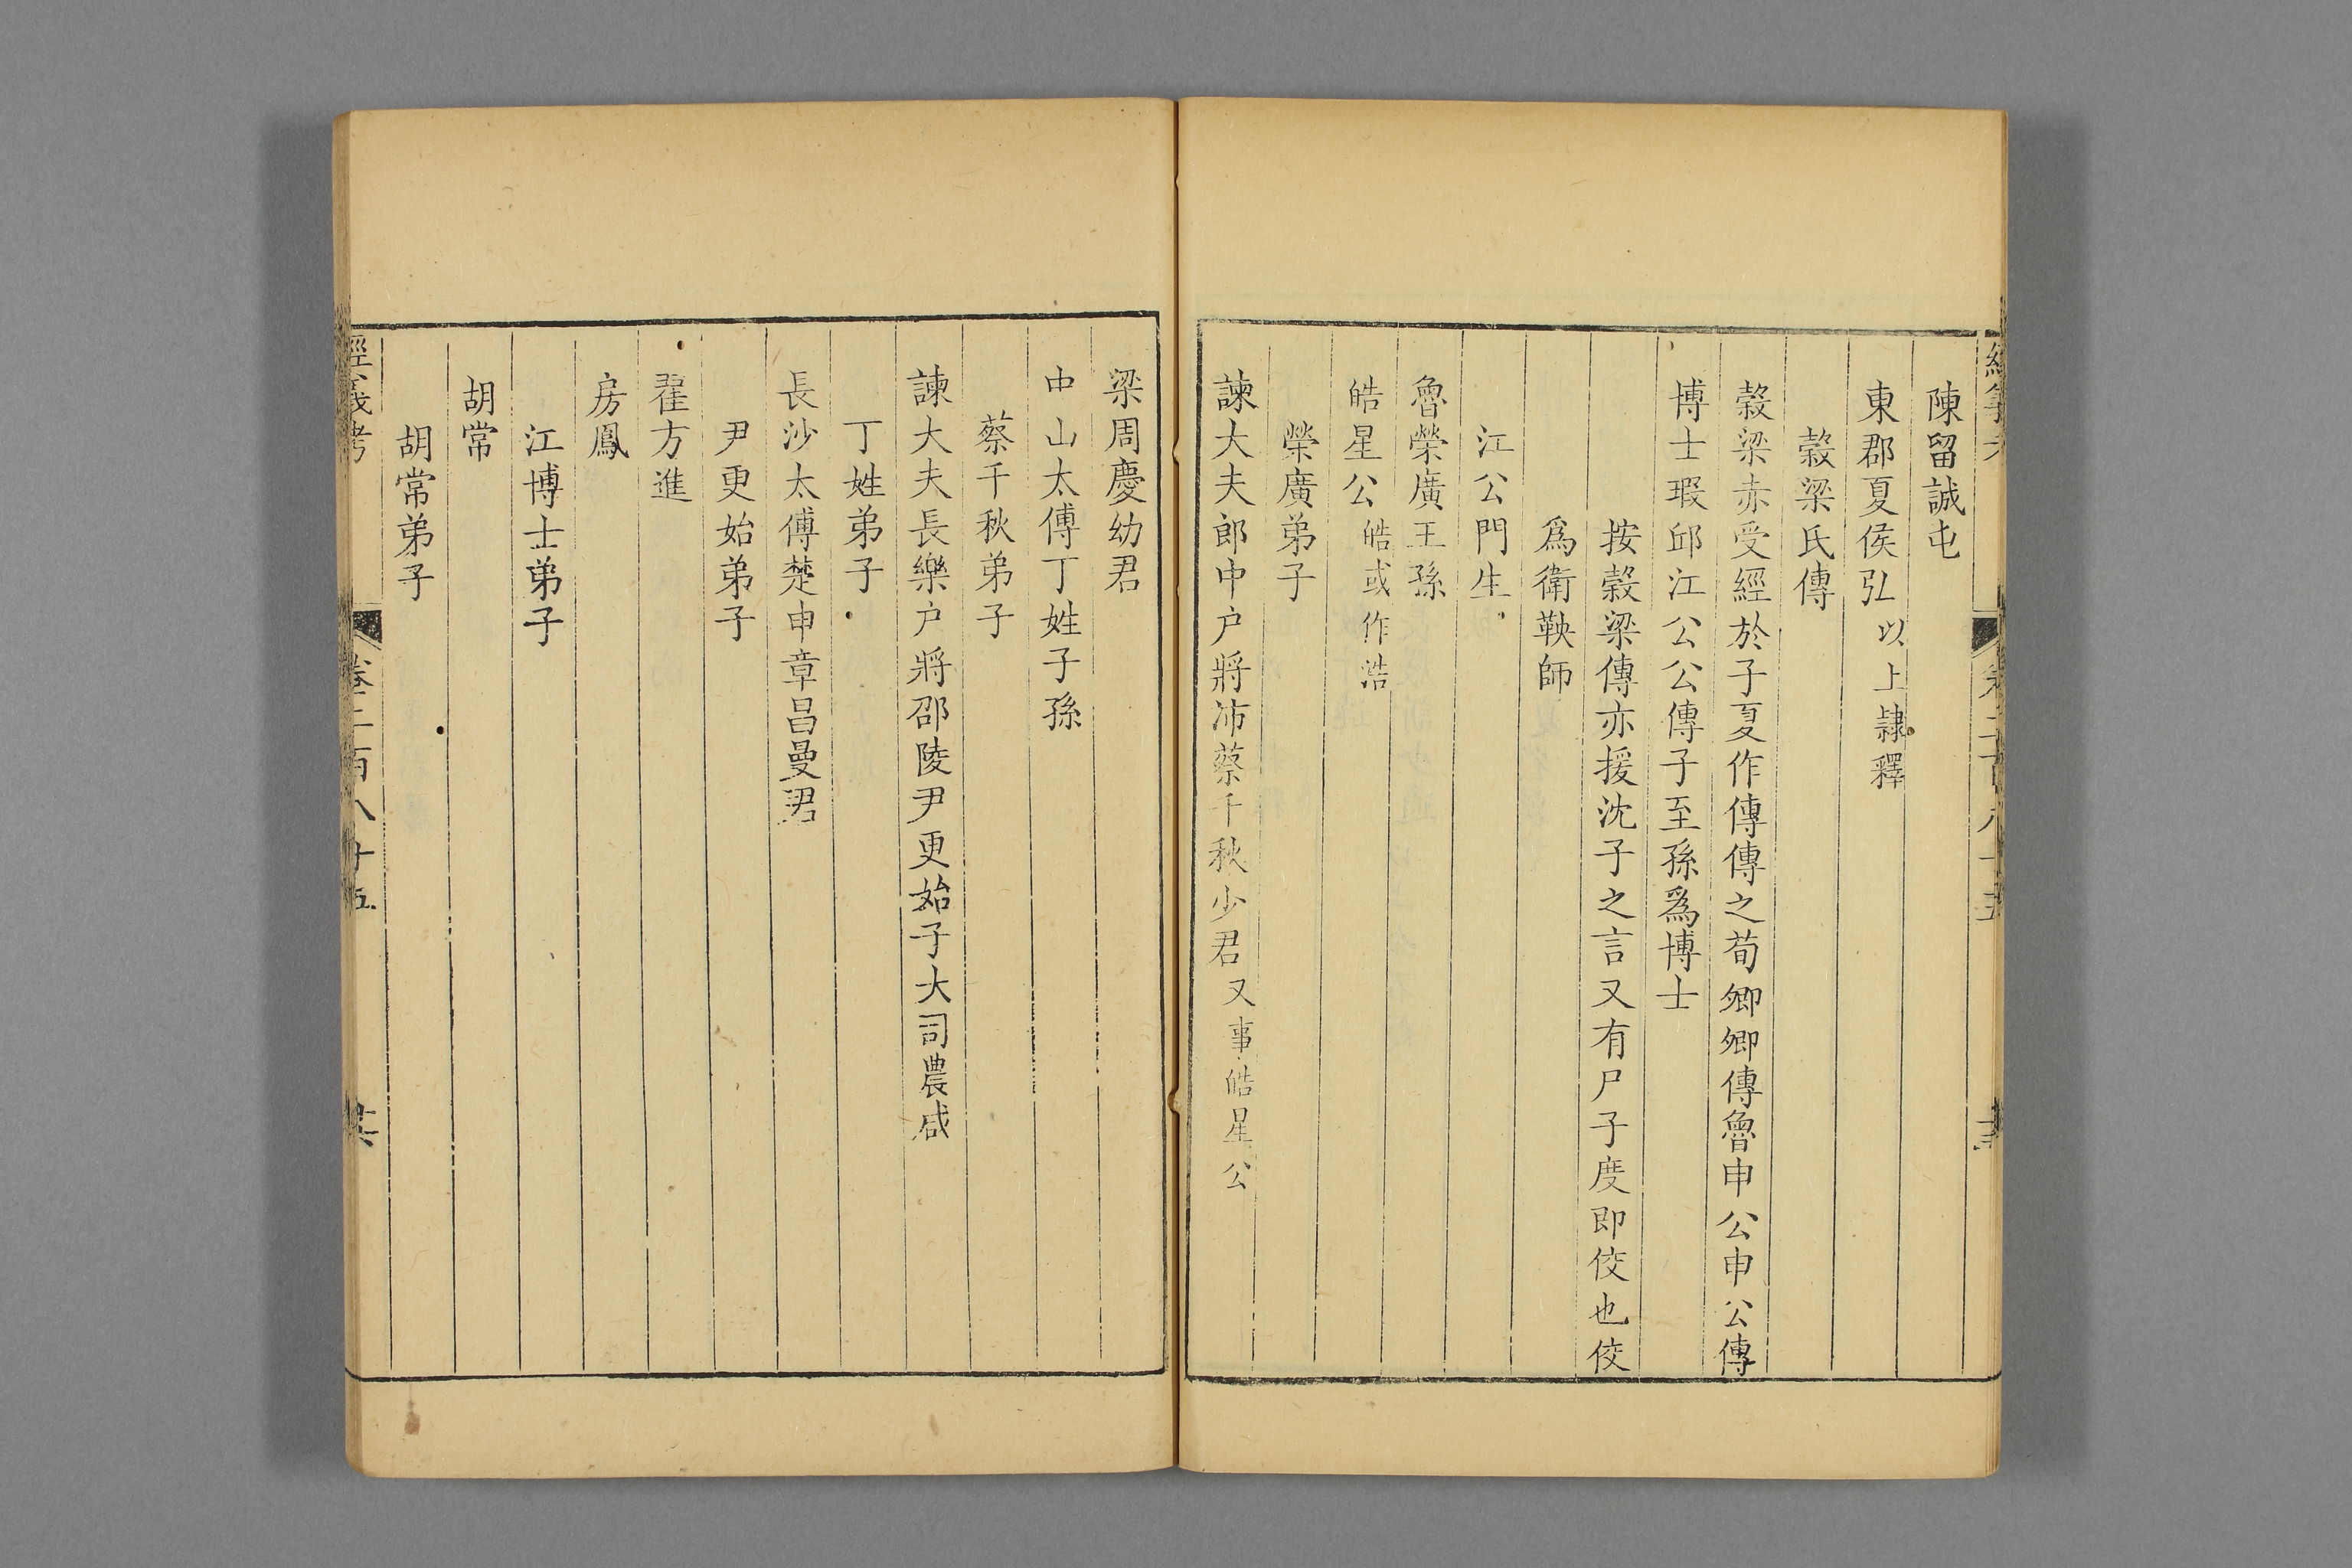 陳留誠屯
東郡夏侯弘以上隷釋
穀梁氏傳
穀梁赤受經於子夏作傳傳之荀卿卿傳魯申公申公傳
博士瑕邱江公公傳子至孫爲博士
按穀梁傳亦援沈子之言又有尸子度即佼也佼
爲衛鞅師
江公門生
魯榮廣王孫
皓星公皓或作浩
榮廣弟子
諫大夫郎中户將沛蔡千秋少君又事皓星公
梁周慶幼君
中山太傅丁姓子孫
蔡千秋弟子
諫大夫長樂户將邵陵尹更始子大司農咸
丁姓弟子
長沙太傅楚申章昌曼君
尹更始弟子
翟方進
房鳳
江博士弟子
胡常
胡常弟子
經義考 卷二百八十五